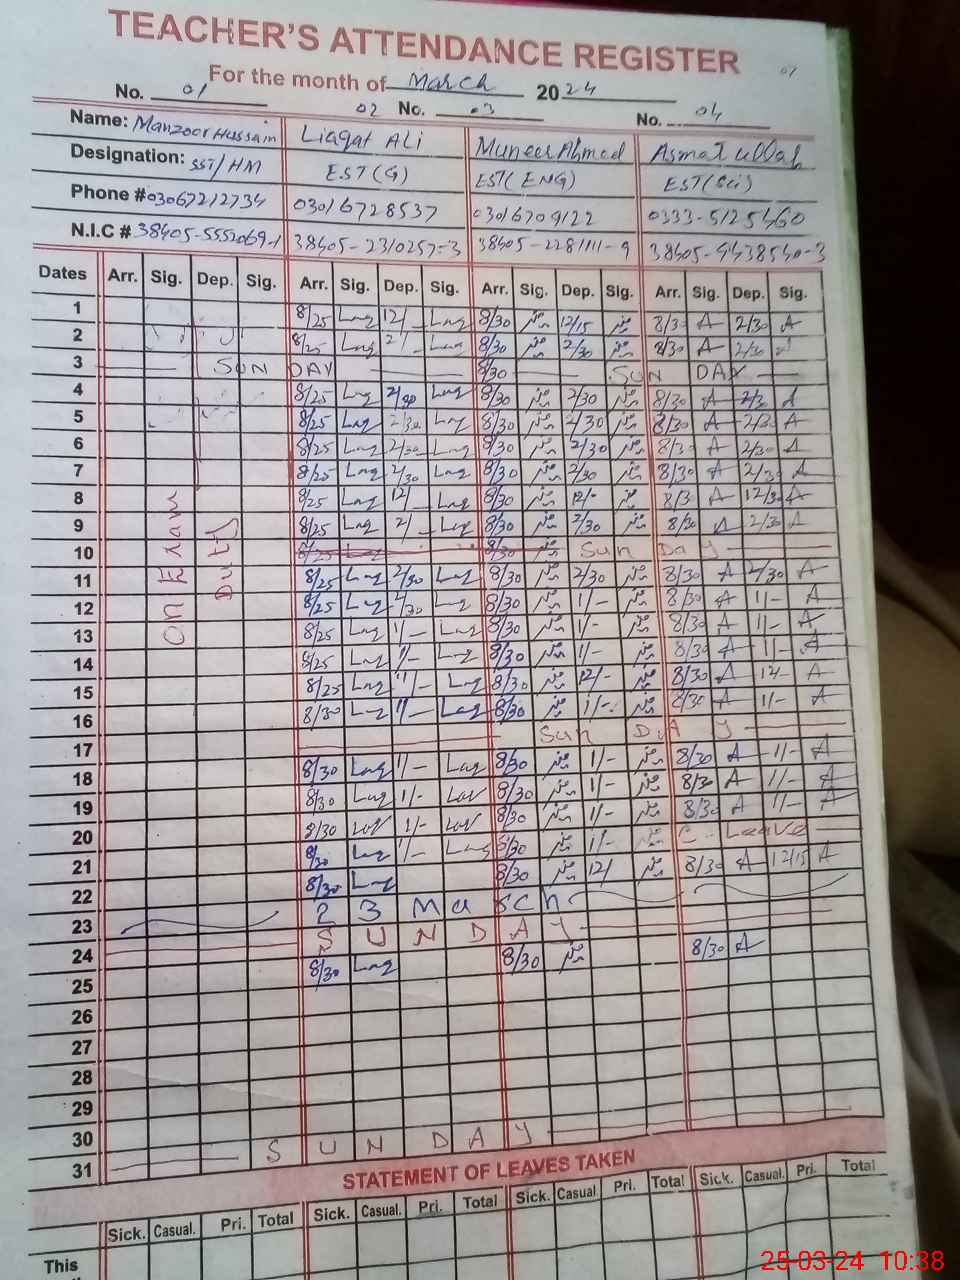 TEACHER'S ATTENDANCE REGISTER
For the month of March 2024
No. 01 02 No. 03 No. 04
Name: Manzoor Hussain Liaqat Ali Muneer Ahmed Asmat ullah
Designation: SST/HM EST(G) EST(ENG) EST(Sci)
Phone # 03067212734 03016728537 03016709122 0333-5125460
N.I.C # 38405-5552069-1 38405-2310257-3 38405-2281111-9 38405-4438540-3
Dates Arr. Sig. Dep. Sig. Arr. Sig. Dep. Sig. Arr. Sig. Dep. Sig. Arr. Sig. Dep. Sig.
1 8/25 Laq 12/- Laq 8/30 12/15 8/30 A 2/30 A
2 8/25 Laq 2/- Laq 8/30 2/30 8/30 A 2/30
3 SUN DAY 8/30 SUN DAY
4 8/25 Laq 2/30 Laq 8/30 2/30 8/30 A 2/30 A
5 8/25 Laq 2/30 Laq 8/30 2/30 8/30 A 2/30 A
6 8/25 Laq 2/30 Laq 8/30 2/30 8/30 A 2/30 A
7 8/25 Laq 2/30 Laq 8/30 2/30 8/30 A 2/30 A
8 8/25 Laq 12/- Laq 8/30 12/- 8/30 A 12/30 A
9 8/25 Laq 2/- Laq 8/30 2/30 8/30 A 2/30 A
On Exam Duty
10 8/25 Laq 8/30 Sun Day
11 8/25 Laq 2/30 Laq 8/30 2/30 8/30 A 2/30 A
12 8/25 Laq 2/30 Laq 8/30 1/- 8/30 A 1/- A
13 8/25 Laq 1/- Laq 8/30 1/- 8/30 A 1/- A
14 8/25 Laq 1/- Laq 8/30 1/- 8/30 A 1/- A
15 8/25 Laq 1/- Laq 8/30 12/- 8/30 A 12/- A
16 8/30 Laq 1/- Laq 8/30 1/- 8/30 A 1/- A
17 Sun DAY
18 8/30 Laq 1/- Laq 8/30 1/- 8/30 A 1/- A
19 8/30 Laq 1/- Laq 8/30 1/- 8/30 A 1/- A
20 8/30 Laq 1/- Laq 8/30 1/- 8/30 A 1/- A
21 8/30 Laq 1/- Laq 8/30 1/- C. Leave
22 8/30 Laq 8/30 12/ 8/30 A 12/15 A
23 23 March
24 SUNDAY
25 8/30 Laq 8/30 8/30 A
26
27
28
29
30
31 SUNDAY
STATEMENT OF LEAVES TAKEN
Sick. Casual. Pri. Total Sick. Casual. Pri. Total Sick. Casual. Pri. Total Sick. Casual. Pri. Total
This
25-03-24 10:38